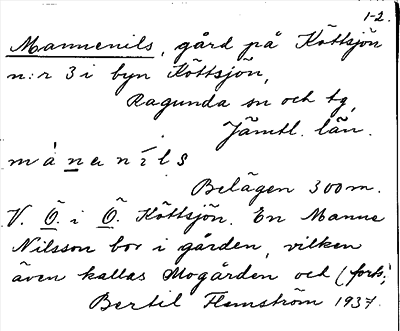 1-2.
Mannenils, gård på Köttsjön
n:r 3 i byn Köttsjön,
Ragunda sn och tg,
Jämtl. län.
màneníls
Belägen 300 m.
V. Ö. i Ö. Köttsjön. En Manne
Nilsson bor i gården, vilken
även kallas Mogården och (forts.)
Bertil Flemström 1937.